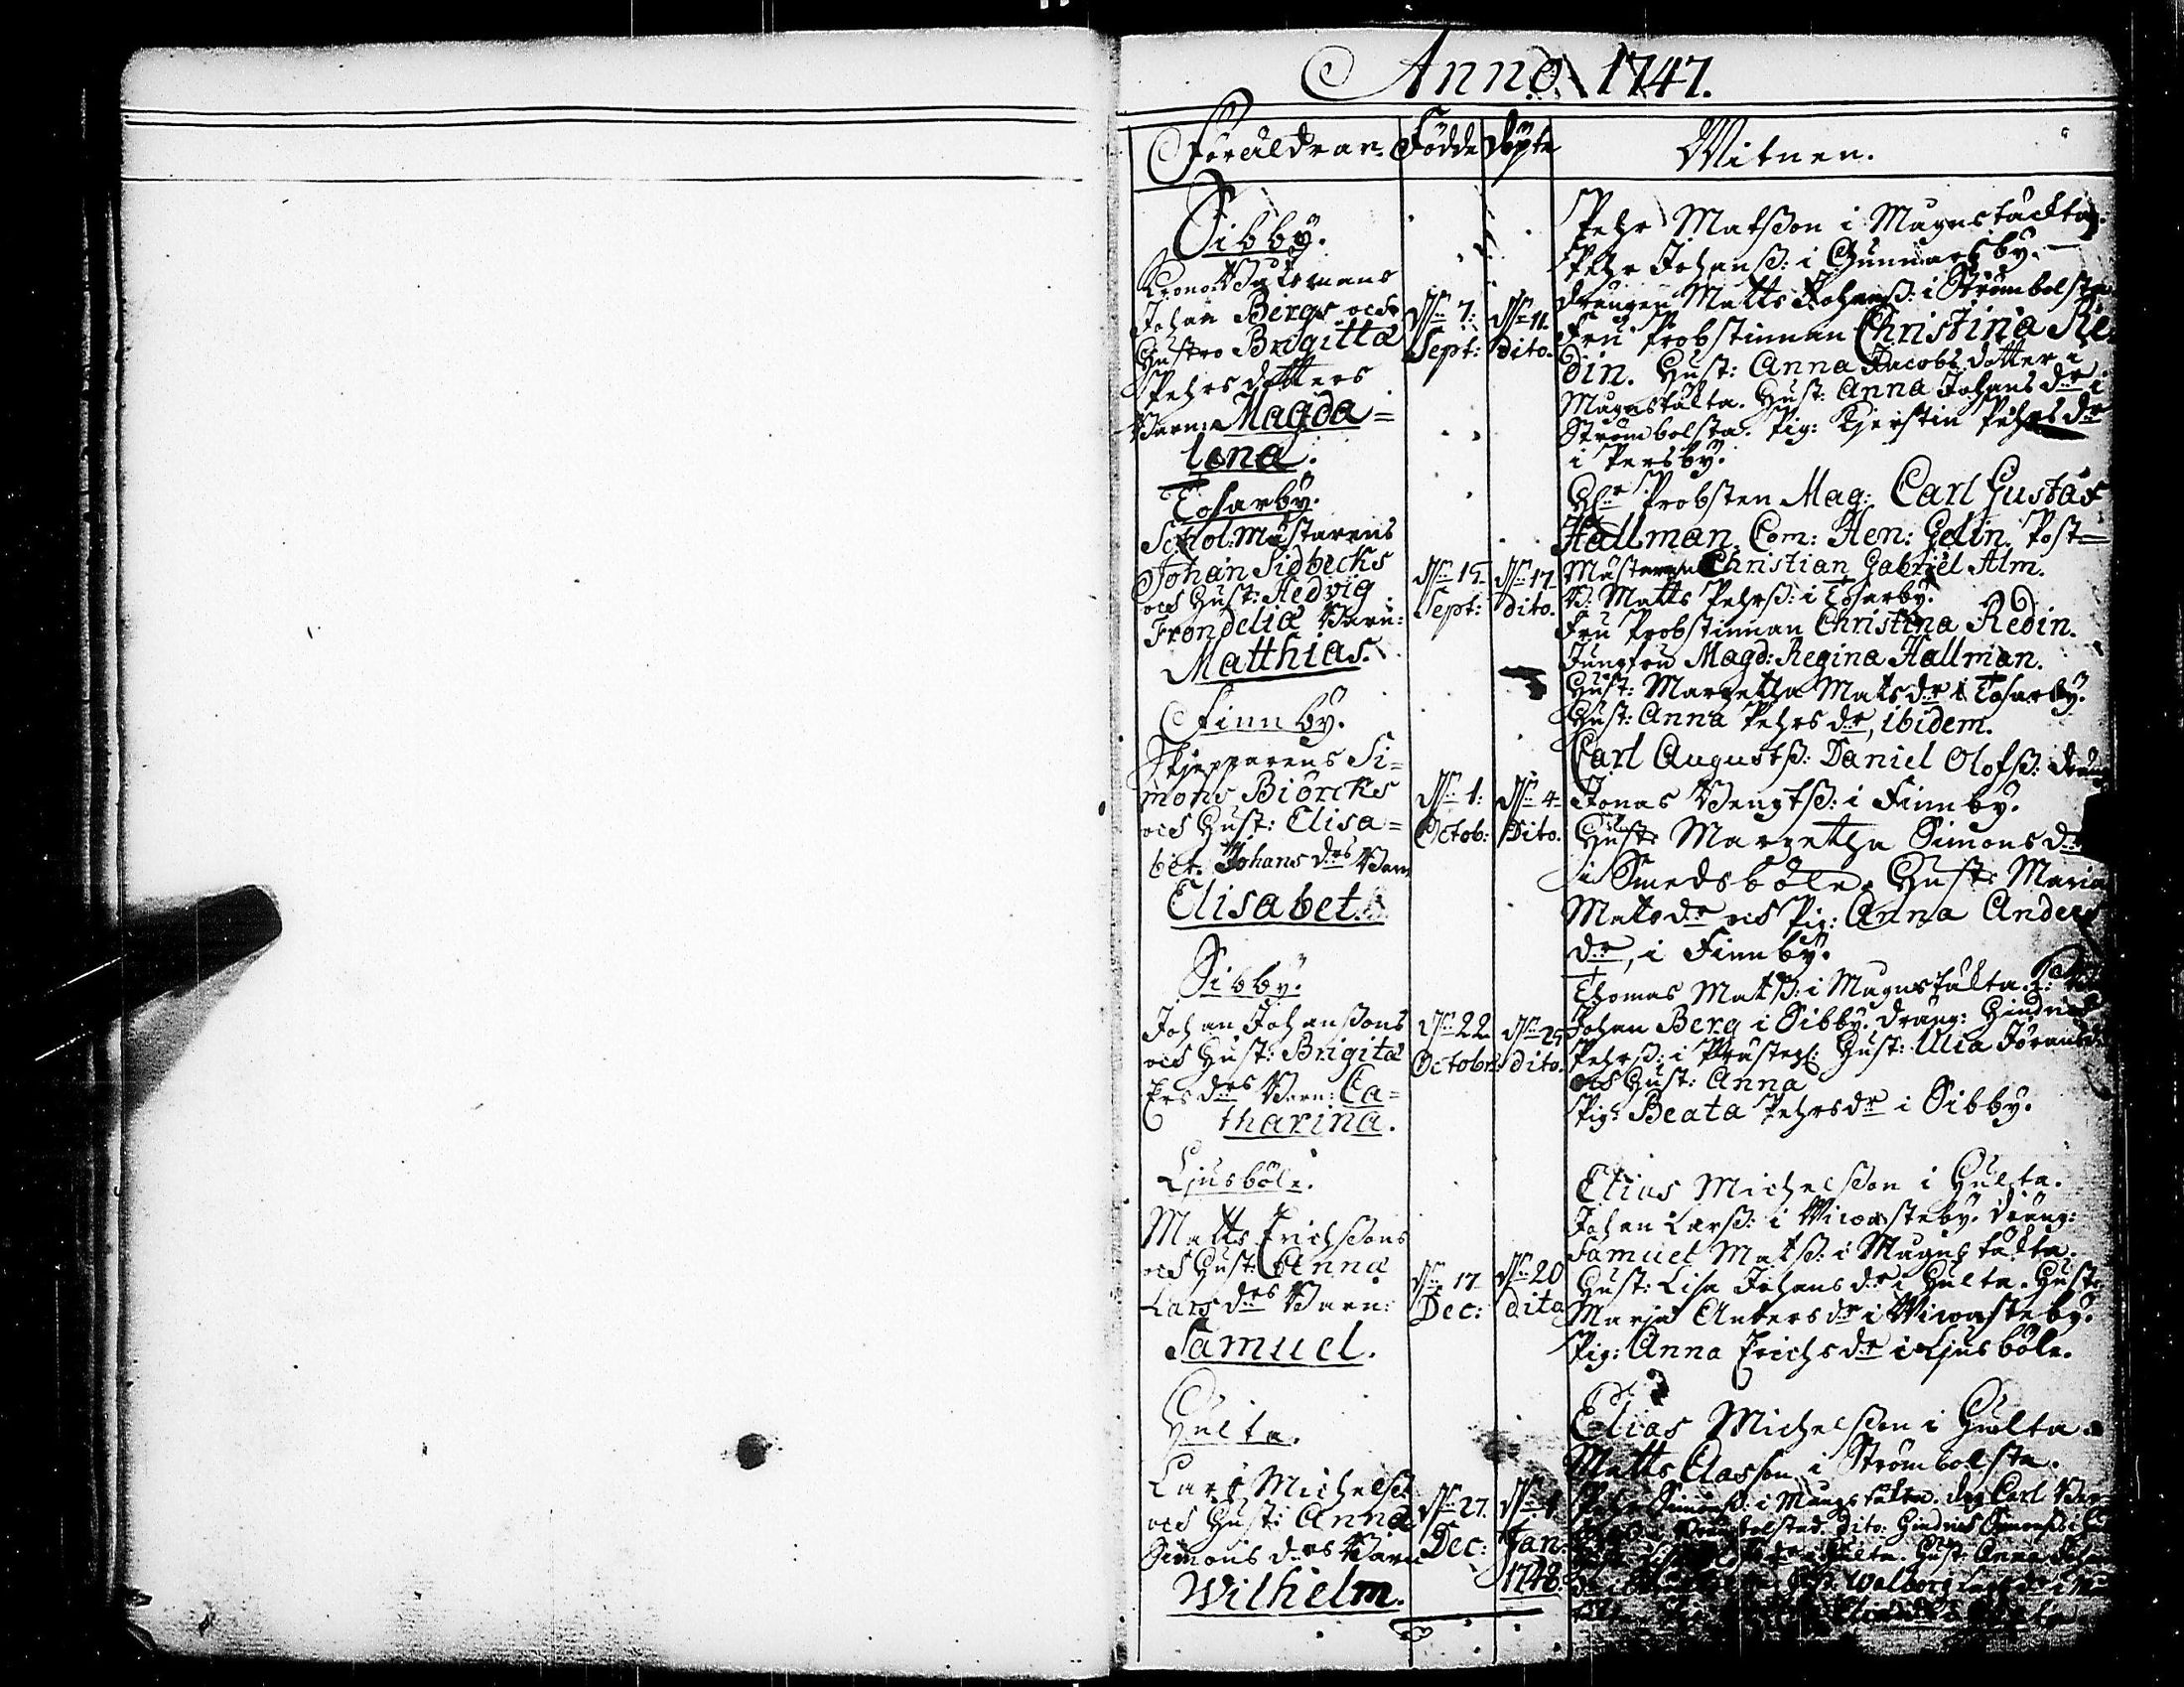 Anno 1747.
Föräldrar. Födde Döpte Witnen.
Sibby.
Crono Båtsmans
Johan Bergs och
Hustro Brigitta
Pehrs dotters
Barn: Magda=
lena.
dn 7: Sept:
dn 11. dito.
Pehr Matsson i Magnstäckta.
Pehr Johanss: i Gunnarsby.
drängen Matts Johanss: i Strömbolsta
Fru Probstinnan Christina Re
din. Hust: Anna Jacobs dotter i
Magnstäkta. Hust: Anna Johans dr i
Strömbolsta. Pig: Kjerstin Pehrs dr
i Persby.
Tosarby.
Schol: Mästarens
Johan Sidbecks
och Hust: Hedvig
Frondeliæ Barn:
Matthias.
dn 15 Sept:
dn 17 dito.
Hr Probsten Mag: Carl Gustaf
Hallman. Com: Hen: Gelin. Post=
Mästaren Christian Gabriel Alm.
B: Matts Pehrss: i Tosarby.
Fru Probstinnan Christina Redin.
Jungfru Magd: Regina Hallman.
Hust: Margetha Mats dr i Tosarby.
Hust: Anna Pehrs dr, ibidem.
Finnby.
Skjepparens Si=
mons Biörcks
och Hust: Elisa=
bet. Johans drs Barn
Elisabet.
dn 1: Octob:
dn 4. Dito.
Carl Augustss: Daniel Olofss: dräng
Jonas Bengtss: i Finnby.
Hust: Margetha Simons dr
i Smedsböle. Hust: Maria
Mats dr och Pig: Anna Anders
dr, i Finnby.
Sibby.
Johan Johanssons
och Hust: Brigita
Ers drs Barn: Ca=
tharina.
dn 22 Octobr:
dn 25 dito.
Thomas Matss: i Magnstäkta.
Johan Berg i Sibby. dräng: Hindrich
Pehrss: i Prästeg: Hust: Ulla Jörans
och Hust: Anna
Pig: Beata Pehrs dr i Sibby.
Ljusböle.
Matts Erichssons
och Hust: Anna
Lars drs Barn:
Samuel.
dn 17 Dec:
dn 20 dito
Elias Michelsson i Hulta.
Johan Larss: i Wiwasteby. dräng:
Samuel Matss: i Magnstäkta.
Hust: Lisa Johans dr i Hulta. Hust:
Marja Anders dr i Wiwasteby.
Pig: Anna Erichs dr i Ljusböle.
Hulta.
Lars Michelss:
och Hust: Anna
Simons drs Barn
Wilhelm.
dn 27. Dec:
dn 1 Jan: 1748.
Elias Michelsson i Hulta.
Matts Classon i Strömbolsta.
Pehr Simonss: i Mangstäkta. dr: Carl
dito: Hindrich Simonss: i
Hulta. Hust: Anna
Walborg Lars dr i